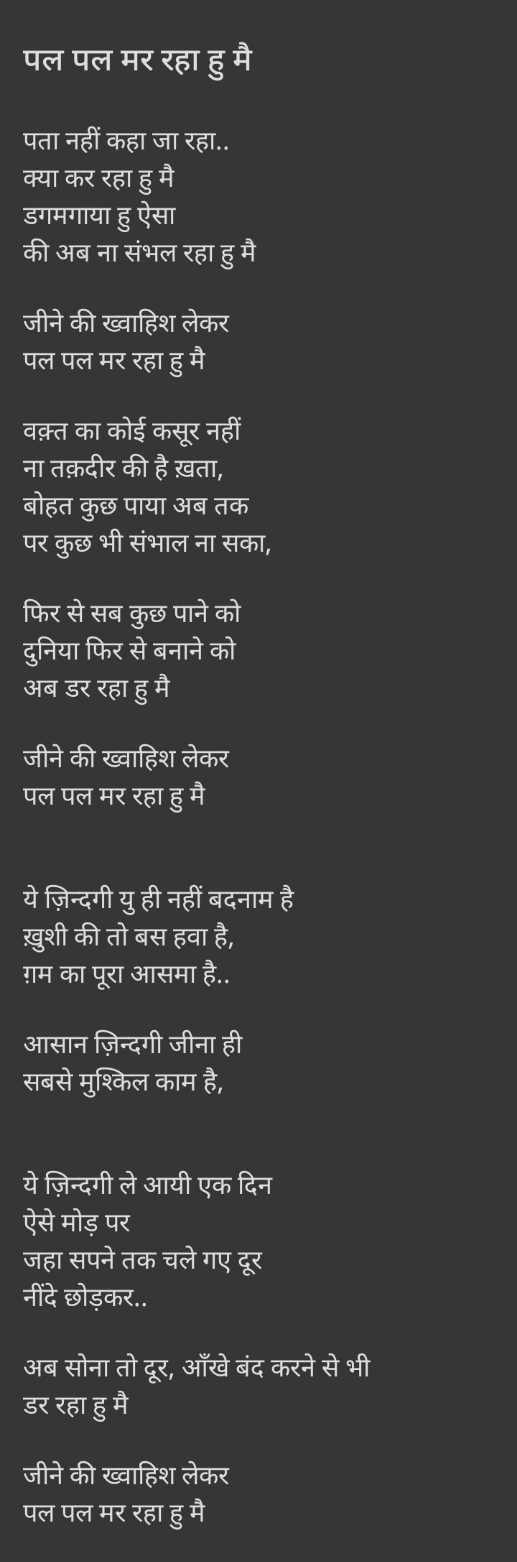 पल पल मर रहा हु मै
पता नहीं कहा जा रहा..
क्या कर रहा हु मै
डगमगाया हु ऐसा
की अब ना संभल रहा हु मै
जीने की ख्वाहिश लेकर
पल पल मर रहा हु मै
वक़्त का कोई कसूर नहीं
ना तक़दीर की है ख़ता,
बोहत कुछ पाया अब तक
पर कुछ भी संभाल ना सका,
फिर से सब कुछ पाने को
दुनिया फिर से बनाने को
अब डर रहा हु मै
जीने की ख्वाहिश लेकर
पल पल मर रहा हु मै
ये ज़िन्दगी यु ही नहीं बदनाम है
ख़ुशी की तो बस हवा है,
ग़म का पूरा आसमा है..
आसान ज़िन्दगी जीना ही
सबसे मुश्किल काम है,
ये ज़िन्दगी ले आयी एक दिन
ऐसे मोड़ पर
जहा सपने तक चले गए दूर
नींदे छोड़कर..
अब सोना तो दूर, आँखे बंद करने से भी
डर रहा हु मै
जीने की ख्वाहिश लेकर
पल पल मर रहा हु मै